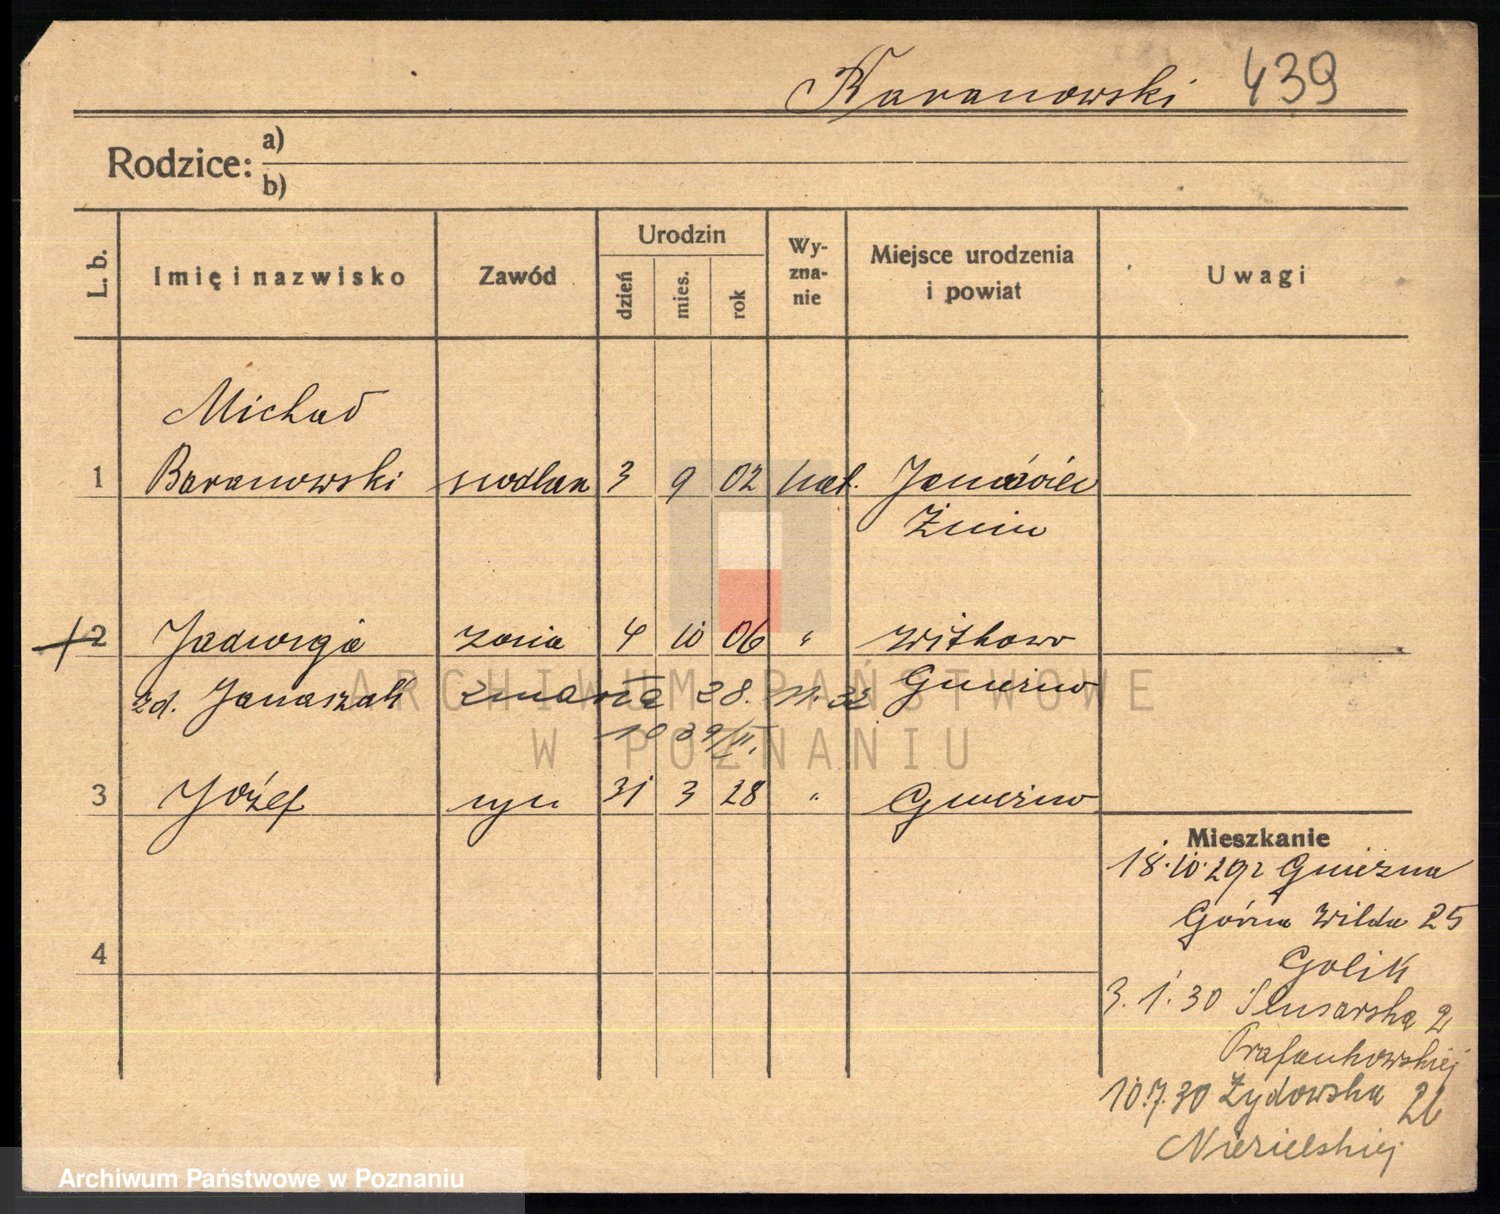 Baranowski 439
Rodzice: a)
b)
L. b.
Imię i nazwisko
Zawód
Urodzin
dzień
mies.
rok
Wy-
zna-
nie
Miejsce urodzenia
i powiat
Uwagi
Michał
1 Baranowski siodlarz 3 9 02 kat. Janówiec
Żnin
2 Jadwiga żona 4 10 06 " Witkowo
zd. Janaszak zmarła 28. 11. 32 Gniezno
3 Józef syn 31 3 28 " Gniezno
4
Mieszkanie
18.10.29 z Gniezna
Górna Wilda 25
Golik
3.1.30 Slusarska 2
10.7.30 Żydowska 26
ARCHIWUM PAŃSTWOWE
W POZNANIU
Archiwum Państwowe w Poznaniu